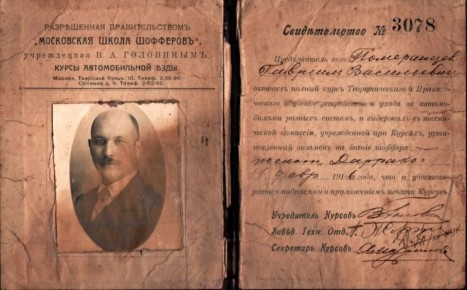 РАЗРѢШЕННАЯ ПРАВИТЕЛЬСТВОМЪ
„МОСКОВСКАЯ ШКОЛА ШОФФЕРОВЪ",
учрежденная Н. А. ГОЛОВИНЫМЪ.
КУРСЫ АВТОМОБИЛЬНОЙ ѢЗДЫ.
Москва, Тверской бульв.
Свидѣтельство № 3078
Предъявитель сего Померанцев
Гавриил Васильевич
окончил полный курс Теоретическаго и Практи-
ческаго и ухода за авто-
мобилями разных систем, и выдержал въ тех-
нической комиссіи, учрежденной при Курсах, уста-
новленный экзамен на званіе шоффера
191 6 года, что и удосто-
вѣряется подписями и приложеніем печати Курсов.
Учредитель Курсов
Завѣд. Техн. Отд.
Секретарь Курсов